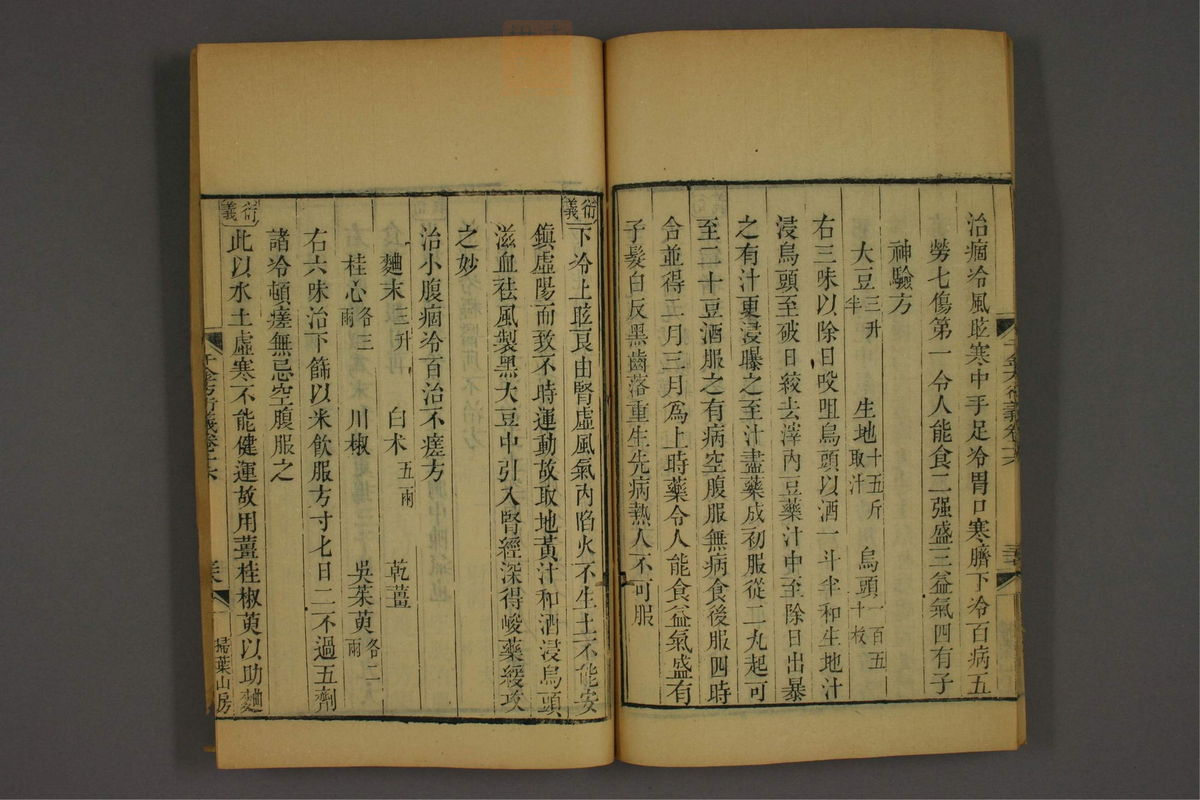 治痼冷風眩寒中手足冷胃口寒臍下冷百病五
勞七傷第一令人能食二强盛三益氣四有子
神驗方
大豆三升半 生地十五斤取汁 烏頭一百五十枚
右三味以除日㕮咀烏頭以酒一斗半和生地汁
浸烏頭至破日絞去滓內豆藥汁中至除日出暴
之有汁更浸曝之至汁盡藥成初服從二丸起可
至二十豆酒服之有病空腹服無病食後服四時
合並得二月三月爲上時藥令人能食益氣盛有
子髮白反黑齒落重生先病熱人不可服
衍義
下冷上眩良由腎虛風氣內陷火不生土不能安
鎮虛陽而致不時運動故取地黃汁和酒浸烏頭
滋血祛風製黑大豆中引入腎經深得峻藥緩攻
之妙
治小腹痼冷百治不瘥方
麯末三升 白朮五兩 乾薑
桂心各三兩 川椒 吳茱萸各二兩
右六味治下篩以米飲服方寸匕日二不過五劑
諸冷頓瘥無忌空腹服之
衍義
此以水土虛寒不能健運故用薑桂椒萸以助麯
千金方衍義卷十六
掃葉山房